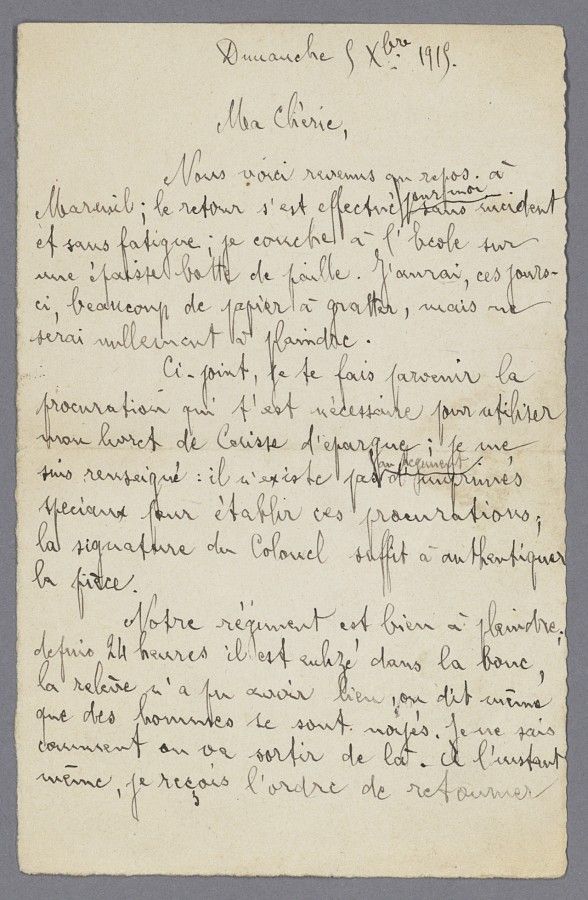 Dimanche 5 Xbre 1915.
Ma Chérie,
Nous voici revenus au repos à
Mareuil ; le retour s'est effectué pour moi sans incident
et sans fatigue ; je couche à l'Ecole sur
une épaisse botte de paille. J'aurai, ces jours-
ci, beaucoup de papier à gratter, mais ne
serai nullement à plaindre.
Ci-joint, je te fais parvenir la
procuration qui t'est nécessaire pour utiliser
mon livret de Caisse d'épargne ; je me
suis renseigné : il n'existe pas au régiment d'imprimés
spéciaux pour établir ces procurations ;
la signature du Colonel suffit à authentiquer
la pièce.
Notre régiment est bien à plaindre ;
depuis 24 heures il est enlizé dans la boue,
la relève n'a pu avoir lieu ; on dit même
que des hommes se sont noyés. Je ne sais
comment on va sortir de là. A l'instant
même, je reçois l'ordre de retourner